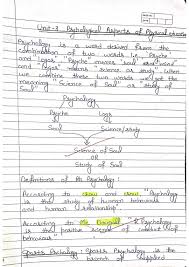 Unit-3 Psychological Aspects of Physical
Psychology is a word derived from the
combination of two words i.e. "Psyche"
and "Logos". Psyche means soul and mind
and "Logos" means science or study. When
we combine these two words we get the
meaning "Science of Soul" or Study of
Soul"
Psychology
Psyche Logos
Soul Science/study
Science of Soul
OR
Study of Soul
Definitions of Psychology :
According to Crow and Crow, "Psychology
is the study of human behaviour and
human relationship"
According to "Psychology
is the positive science of conduct or
behaviour"
Sports Psychology : Sports Psychology is the
branch of applied